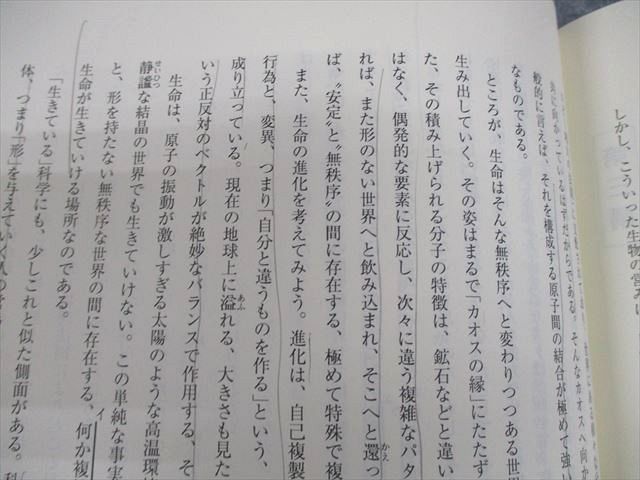 しかし、こういった生物の営みに
に向かっているはずだからである。そんなカオスへ向か
般的に言えば、それを構成する原子間の結合が極めて強い
なものである。
ところが、生命はそんな無秩序へと変わりつつある世
生み出していく。その姿はまるで「カオスの縁」にたたず
た、その積み上げられる分子の特徴は、鉱石などと違い
はなく、偶発的な要素に反応し、次々に違う複雑なパタ
れば、また形のない世界へと飲み込まれ、そこへと還っ
かえ
ば、“安定”と“無秩序”の間に存在する、極めて特殊で複
また、生命の進化を考えてみよう。進化は、自己複製
行為と、変異、つまり「自分と違うものを作る」という、
成り立っている。現在の地球上に溢れる、大きさも見た
あふ
いう正反対のベクトルが絶妙なバランスで作用する、そ
生命は、原子の振動が激しすぎる太陽のような高温環
静謐な結晶の世界でも生きていけない。この単純な事実
せいひつ
と、形を持たない無秩序な世界の間に存在する、何か複
イ
生命が生きていける場所なのである。
「生きている」科学にも、少しこれと似た側面がある。科
体、つまり「形」を与えていく